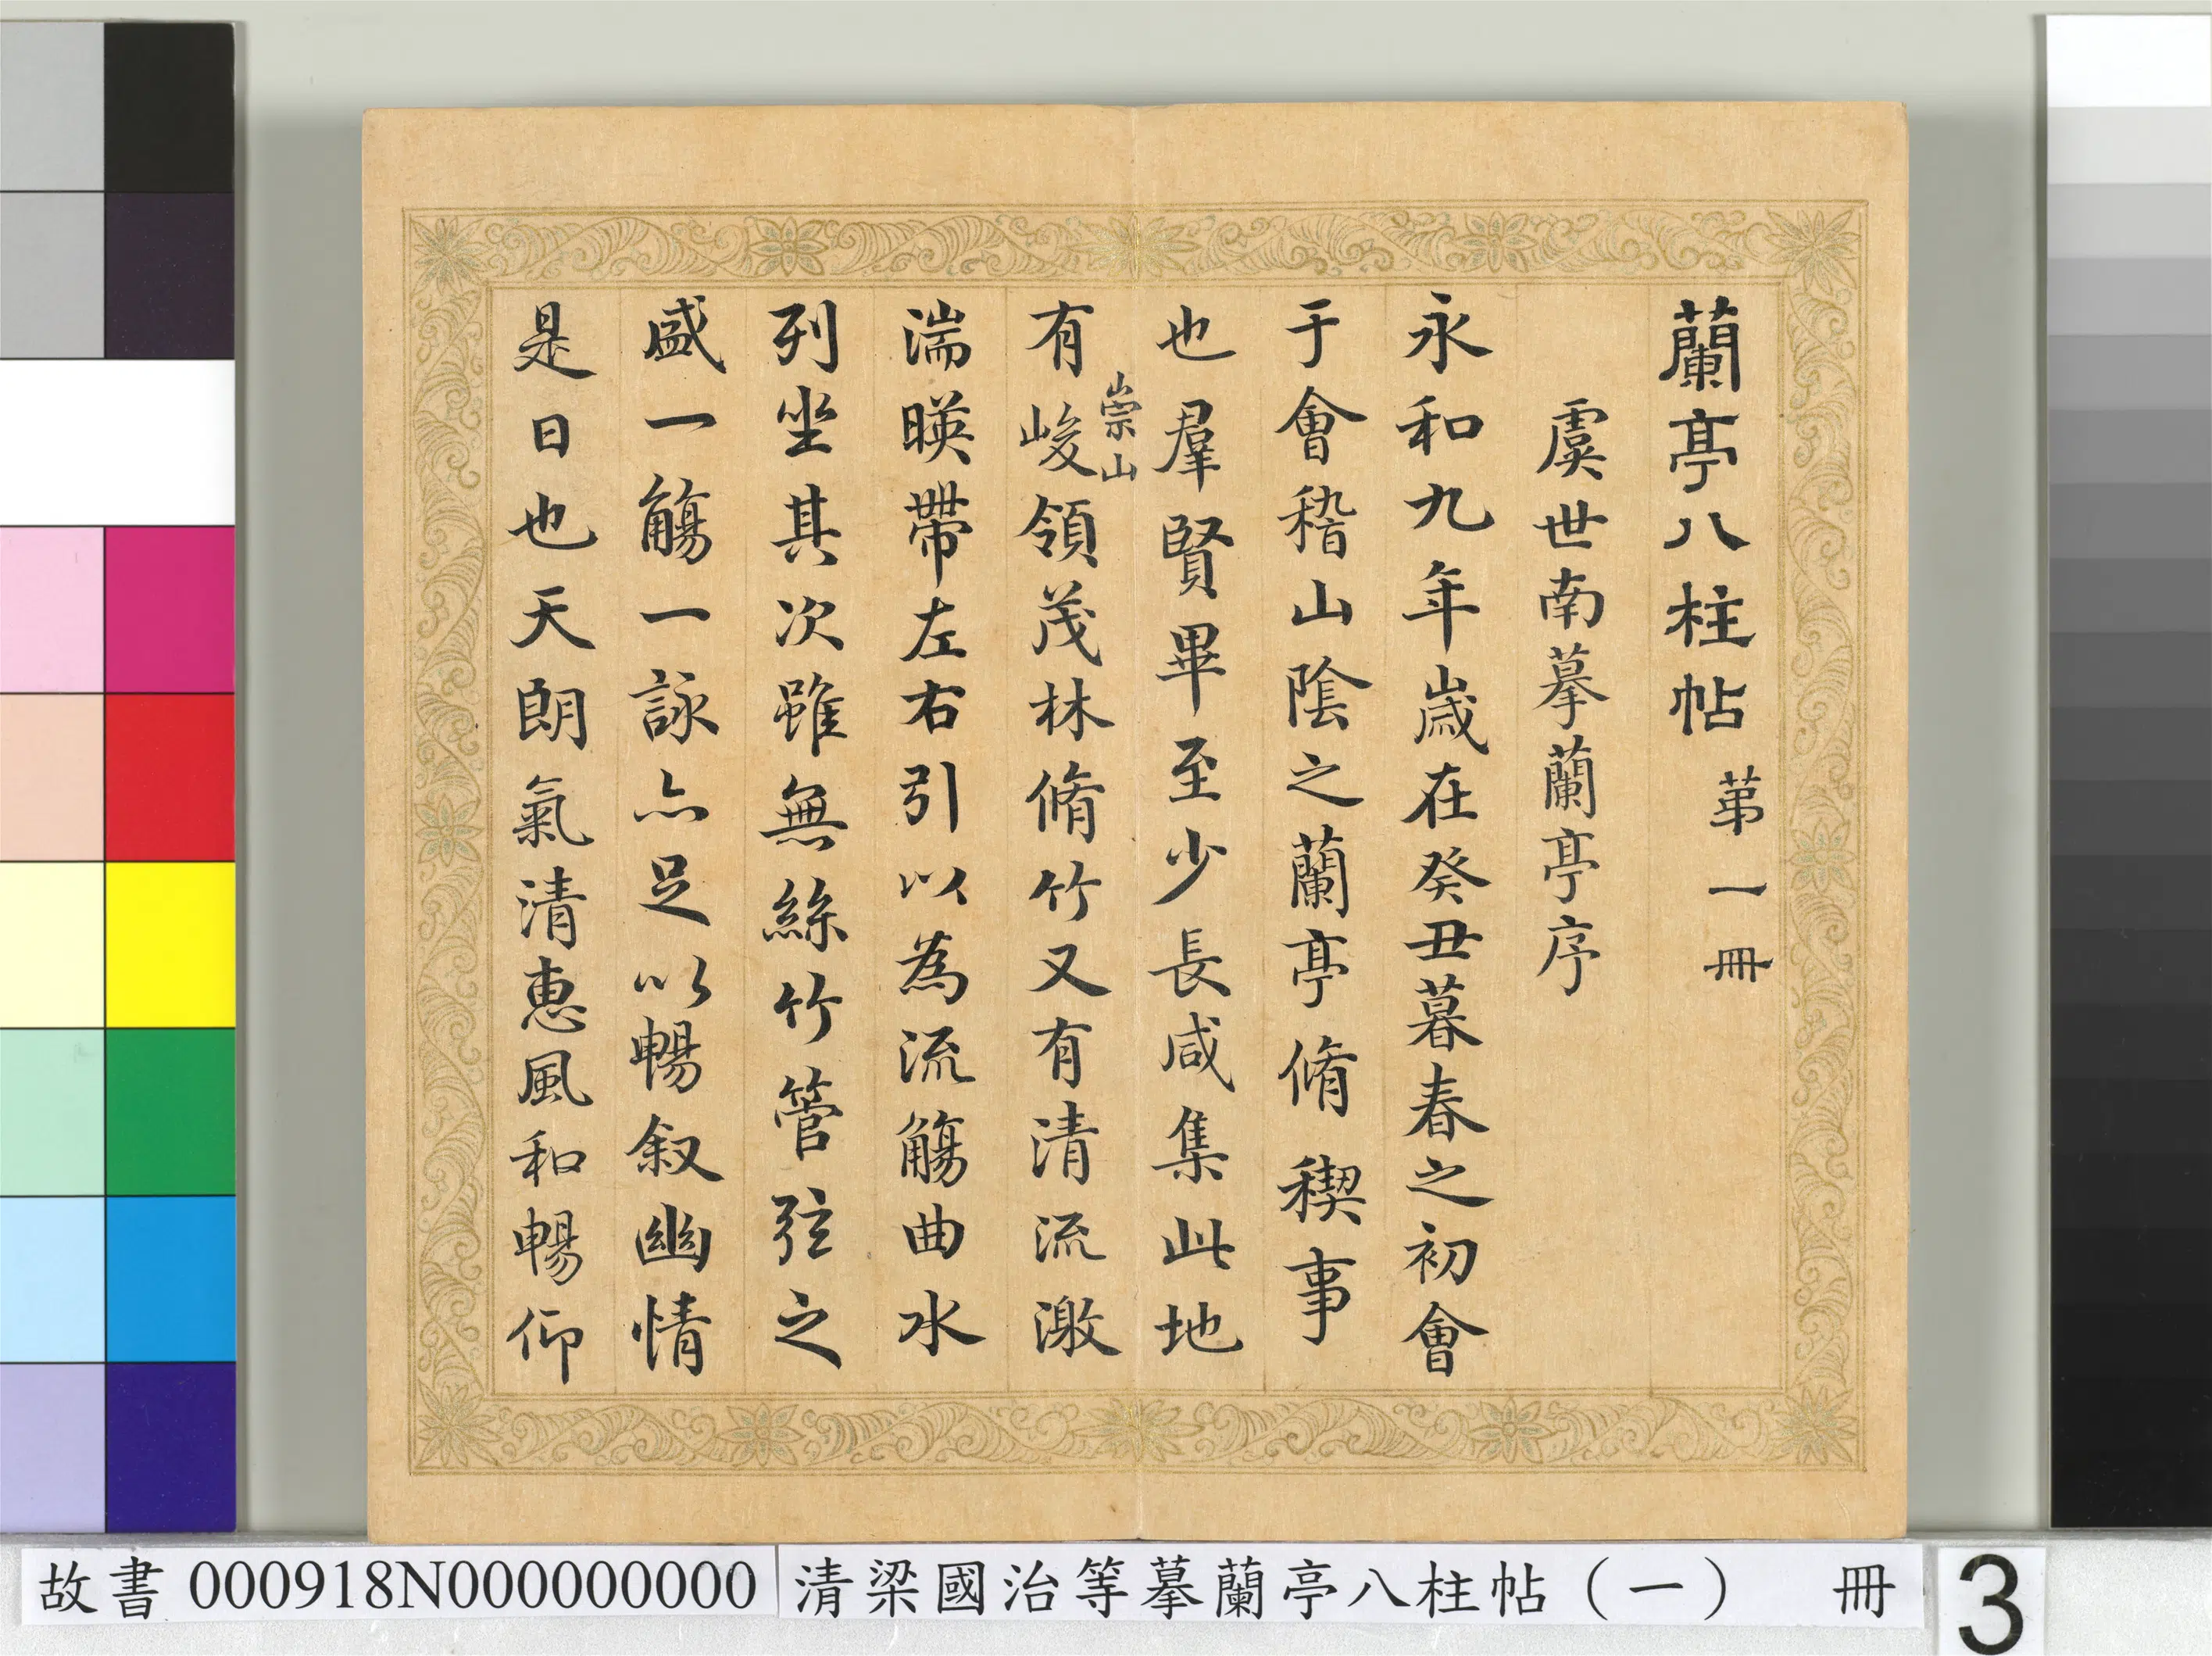 蘭亭八柱帖 苐一冊
虞世南摹蘭亭序
永和九年歲在癸丑暮春之初會
于會稽山陰之蘭亭脩稧事
也羣賢畢至少長咸集此地
崇山
有峻領茂林脩竹又有清流激
湍暎帶左右引以為流觴曲水
列坐其次雖無絲竹管弦之
盛一觴一詠亦足以暢叙幽情
是日也天朗氣清惠風和暢仰
故書 000918N000000000 清梁國治等摹蘭亭八柱帖（一） 冊 3